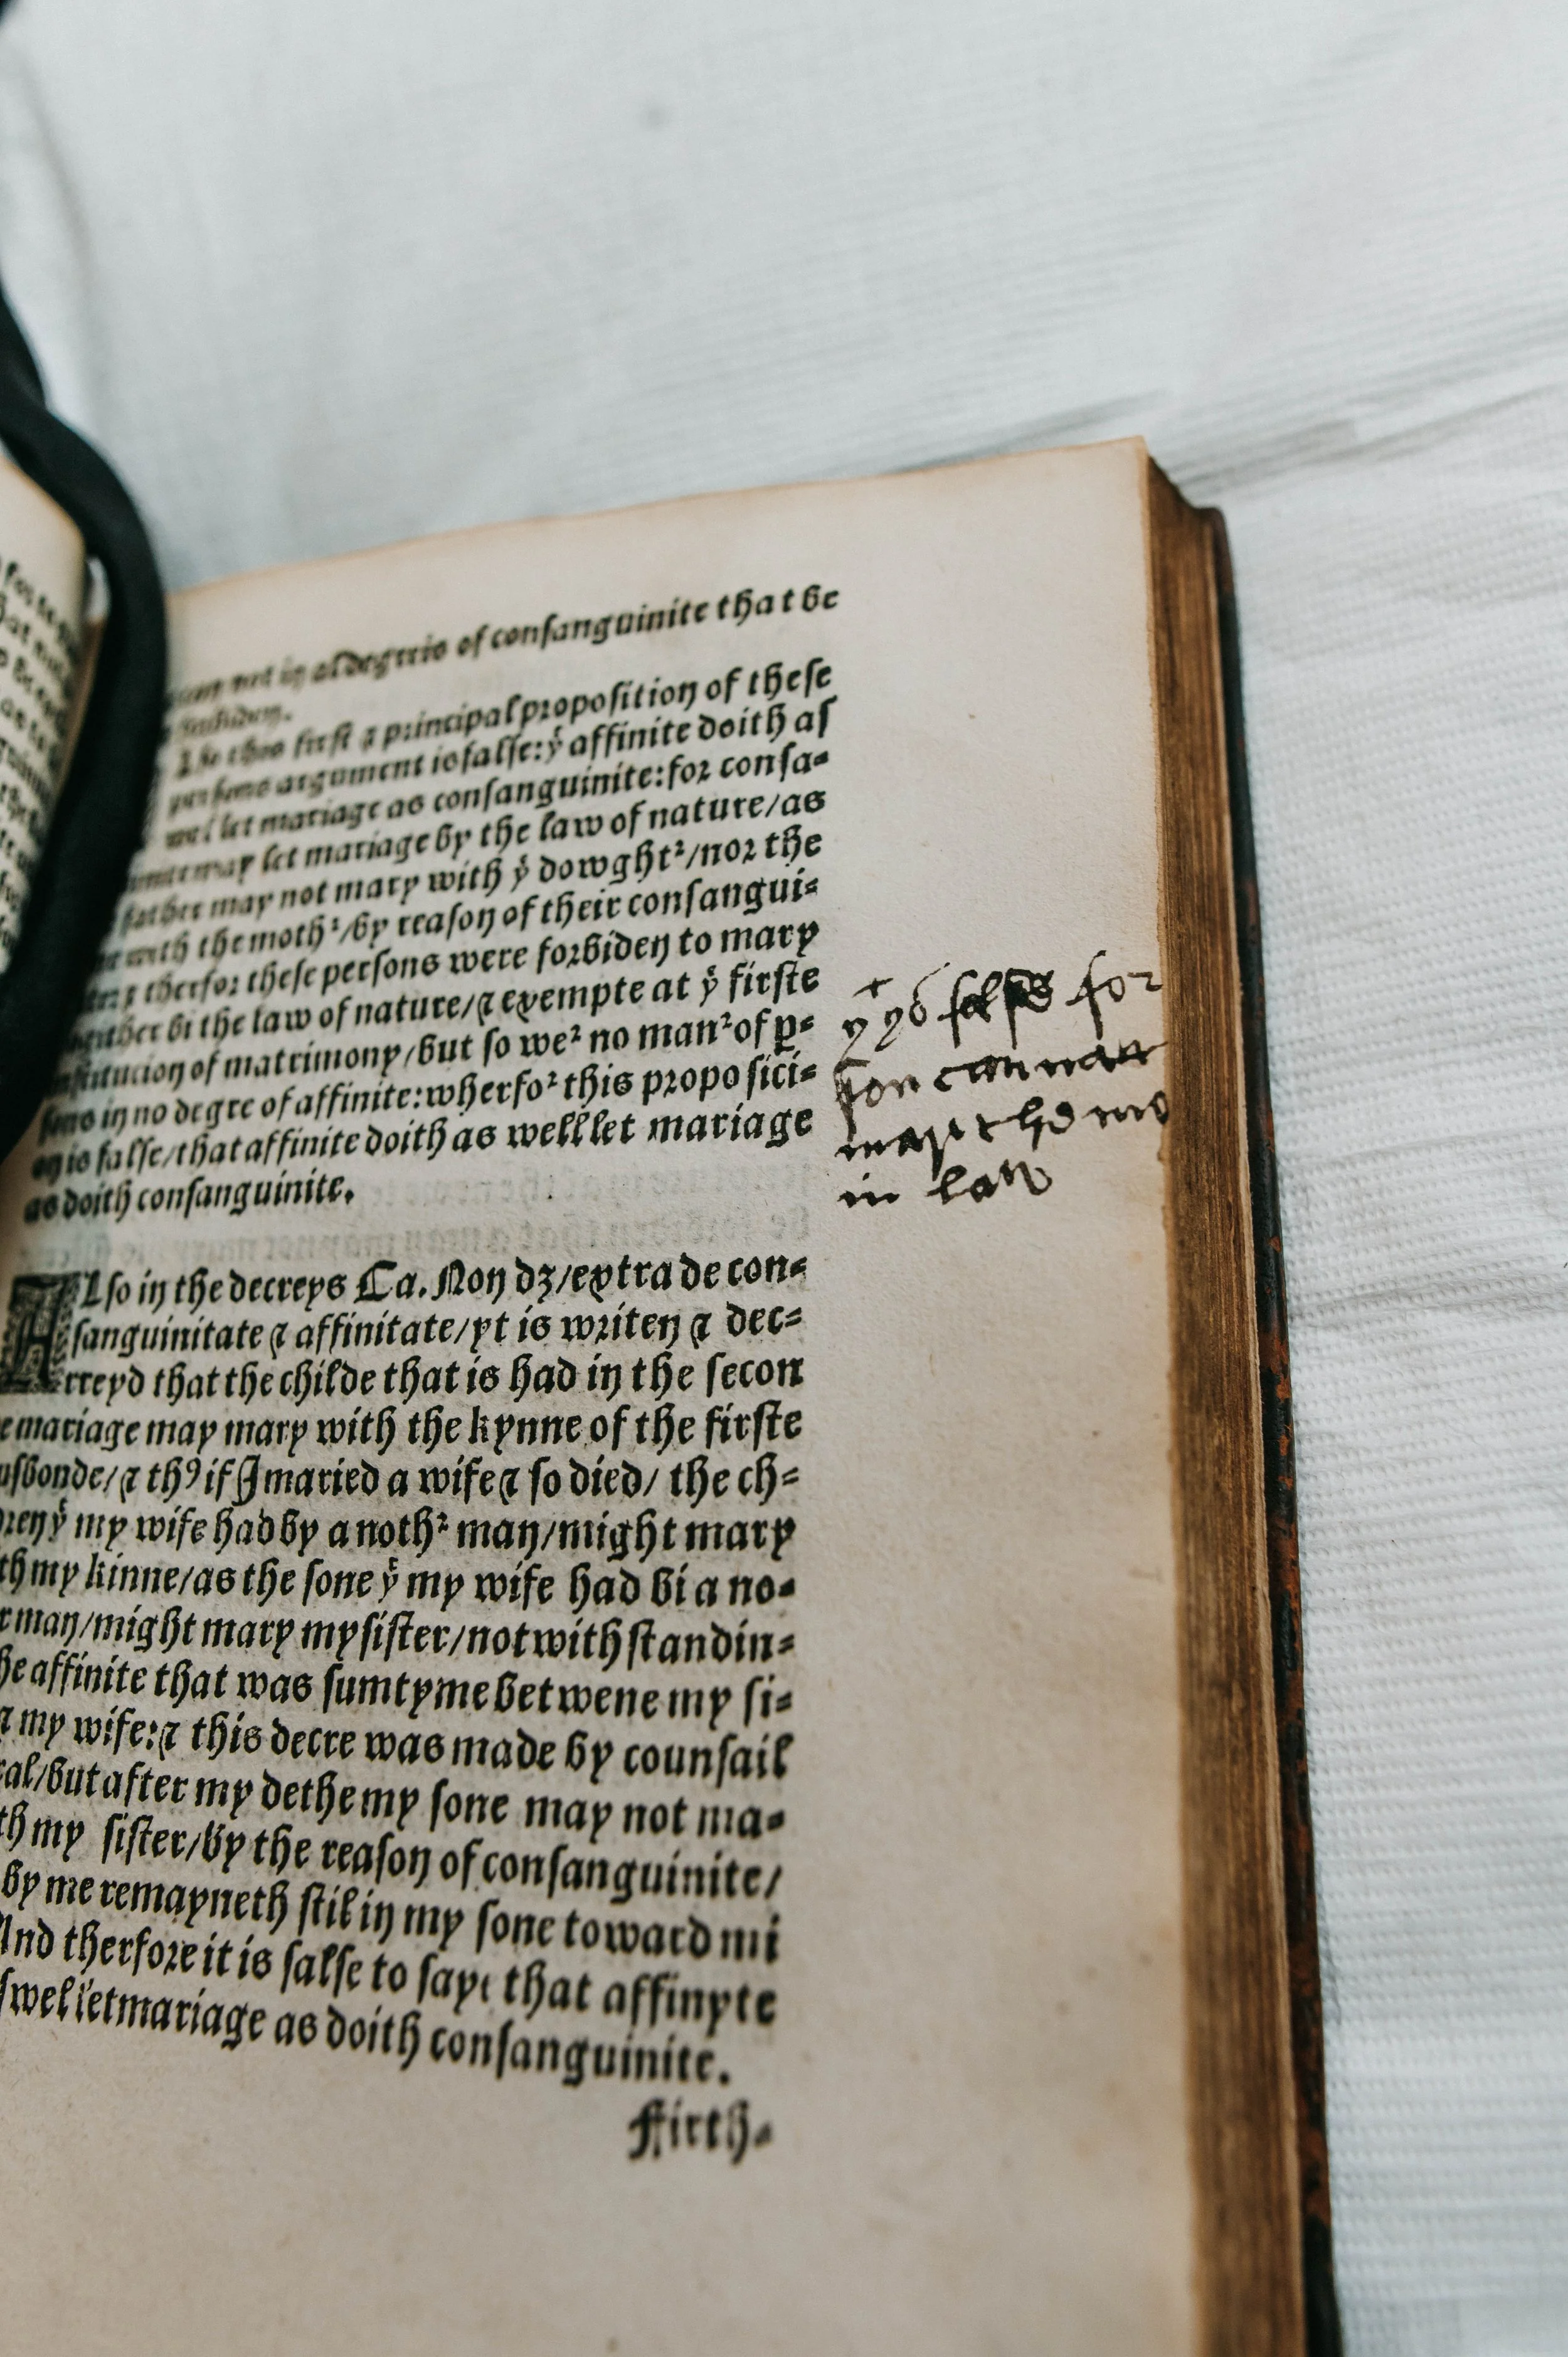 not in al degreis of consanguinite that be
forbiden.
Also this first ⁊ principal proposition of these
persons argument is false: yͭ affinite doith as
wel let mariage as consanguinite: for consa⸗
may let mariage by the law of nature/as
father may not mary with yͤ dowghtꝛ/nor the
with the mothꝛ/by reason of their consangui⸗
therfor these persons were forbiden to mary
bi the law of nature/⁊ exempte at yͤ firste
institucion of matrimony/but so weꝛ no manꝛ of ꝑ⸗
sons in no degre of affinite: wherfoꝛ this proposici⸗
on is false/that affinite doith as well let mariage
as doith consanguinite.
yͭ ys false for
son can nan
mary hys mo
in law
Also in the decreys Ca. Non dȝ/extra de con⸗
sanguinitate ⁊ affinitate/yt is writen ⁊ dec⸗
rreyd that the childe that is had in the secon
e mariage may mary with the kynne of the firste
usbonde/⁊ thꝰ if I maried a wife ⁊ so died/ the ch⸗
dren yͭ my wife had by a nothꝛ man/might mary
th my kinne/as the sone yͭ my wife had bi a no⸗
r man/might mary my sister/notwithstandin⸗
he affinite that was sumtyme betwene my si⸗
⁊ my wife: ⁊ this decre was made by counsail
al/but after my dethe my sone may not ma⸗
th my sister/by the reason of consanguinite/
by me remayneth stil in my sone toward mi
And therfore it is false to say that affinyte
swel let mariage as doith consanguinite.
Firth⸗